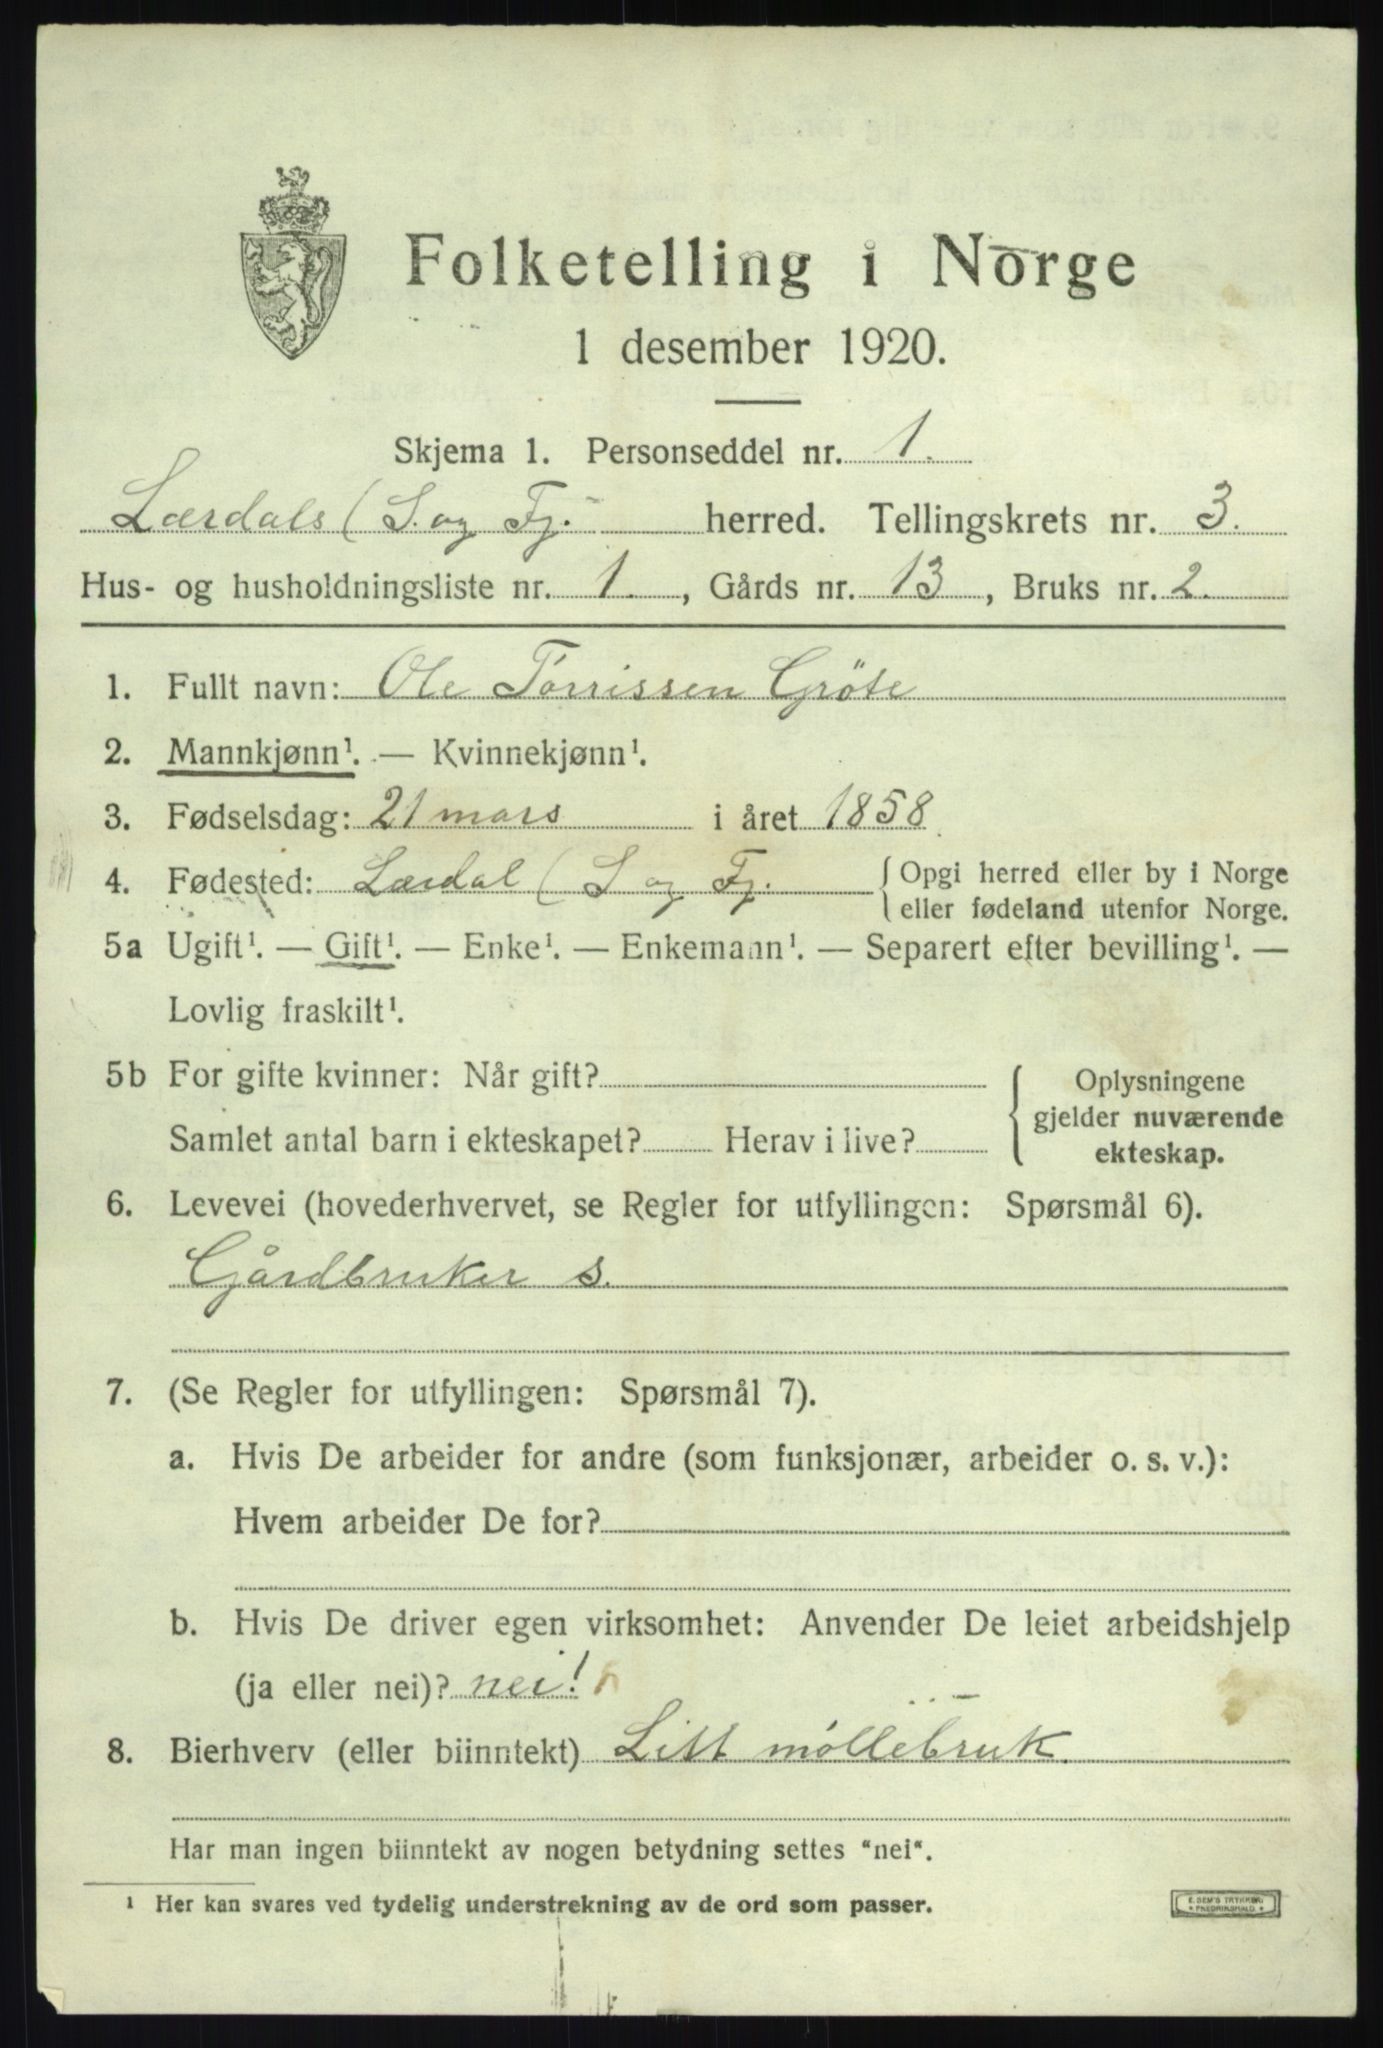 Folketelling i Norge
1 desember 1920.
Skjema 1. Personseddel nr. 1.
Lærdals (S. og Fj. herred. Tellingskrets nr. 3.
Hus- og husholdningsliste nr. 1., Gårds nr. 13, Bruks nr. 2.
1. Fullt navn: Ole Torrissen Gröte
2. Mannkjønn¹. — Kvinnekjønn¹.
3. Fødselsdag: 21 mars i året 1858
4. Fødested: Lærdal (S og Fj. { Opgi herred eller by i Norge
eller fødeland utenfor Norge.
5a Ugift¹. — Gift¹. — Enke¹. — Enkemann¹. — Separert efter bevilling¹. —
Lovlig fraskilt¹.
5b For gifte kvinner: Når gift?
Samlet antal barn i ekteskapet? Herav i live?
Oplysningene
gjelder nuværende
ekteskap.
6. Levevei (hovederhvervet, se Regler for utfyllingen: Spørsmål 6).
Gårdbruker s.
7. (Se Regler for utfyllingen: Spørsmål 7).
a. Hvis De arbeider for andre (som funksjonær, arbeider o. s. v.):
Hvem arbeider De for?
b. Hvis De driver egen virksomhet: Anvender De leiet arbeidshjelp
(ja eller nei)? nei!
8. Bierhverv (eller biinntekt) Litt møllebruk.
Har man ingen biinntekt av nogen betydning settes "nei".
¹ Her kan svares ved tydelig understrekning av de ord som passer.
E. SEM'S TRYKKERI
* FREDRIKSHALD *